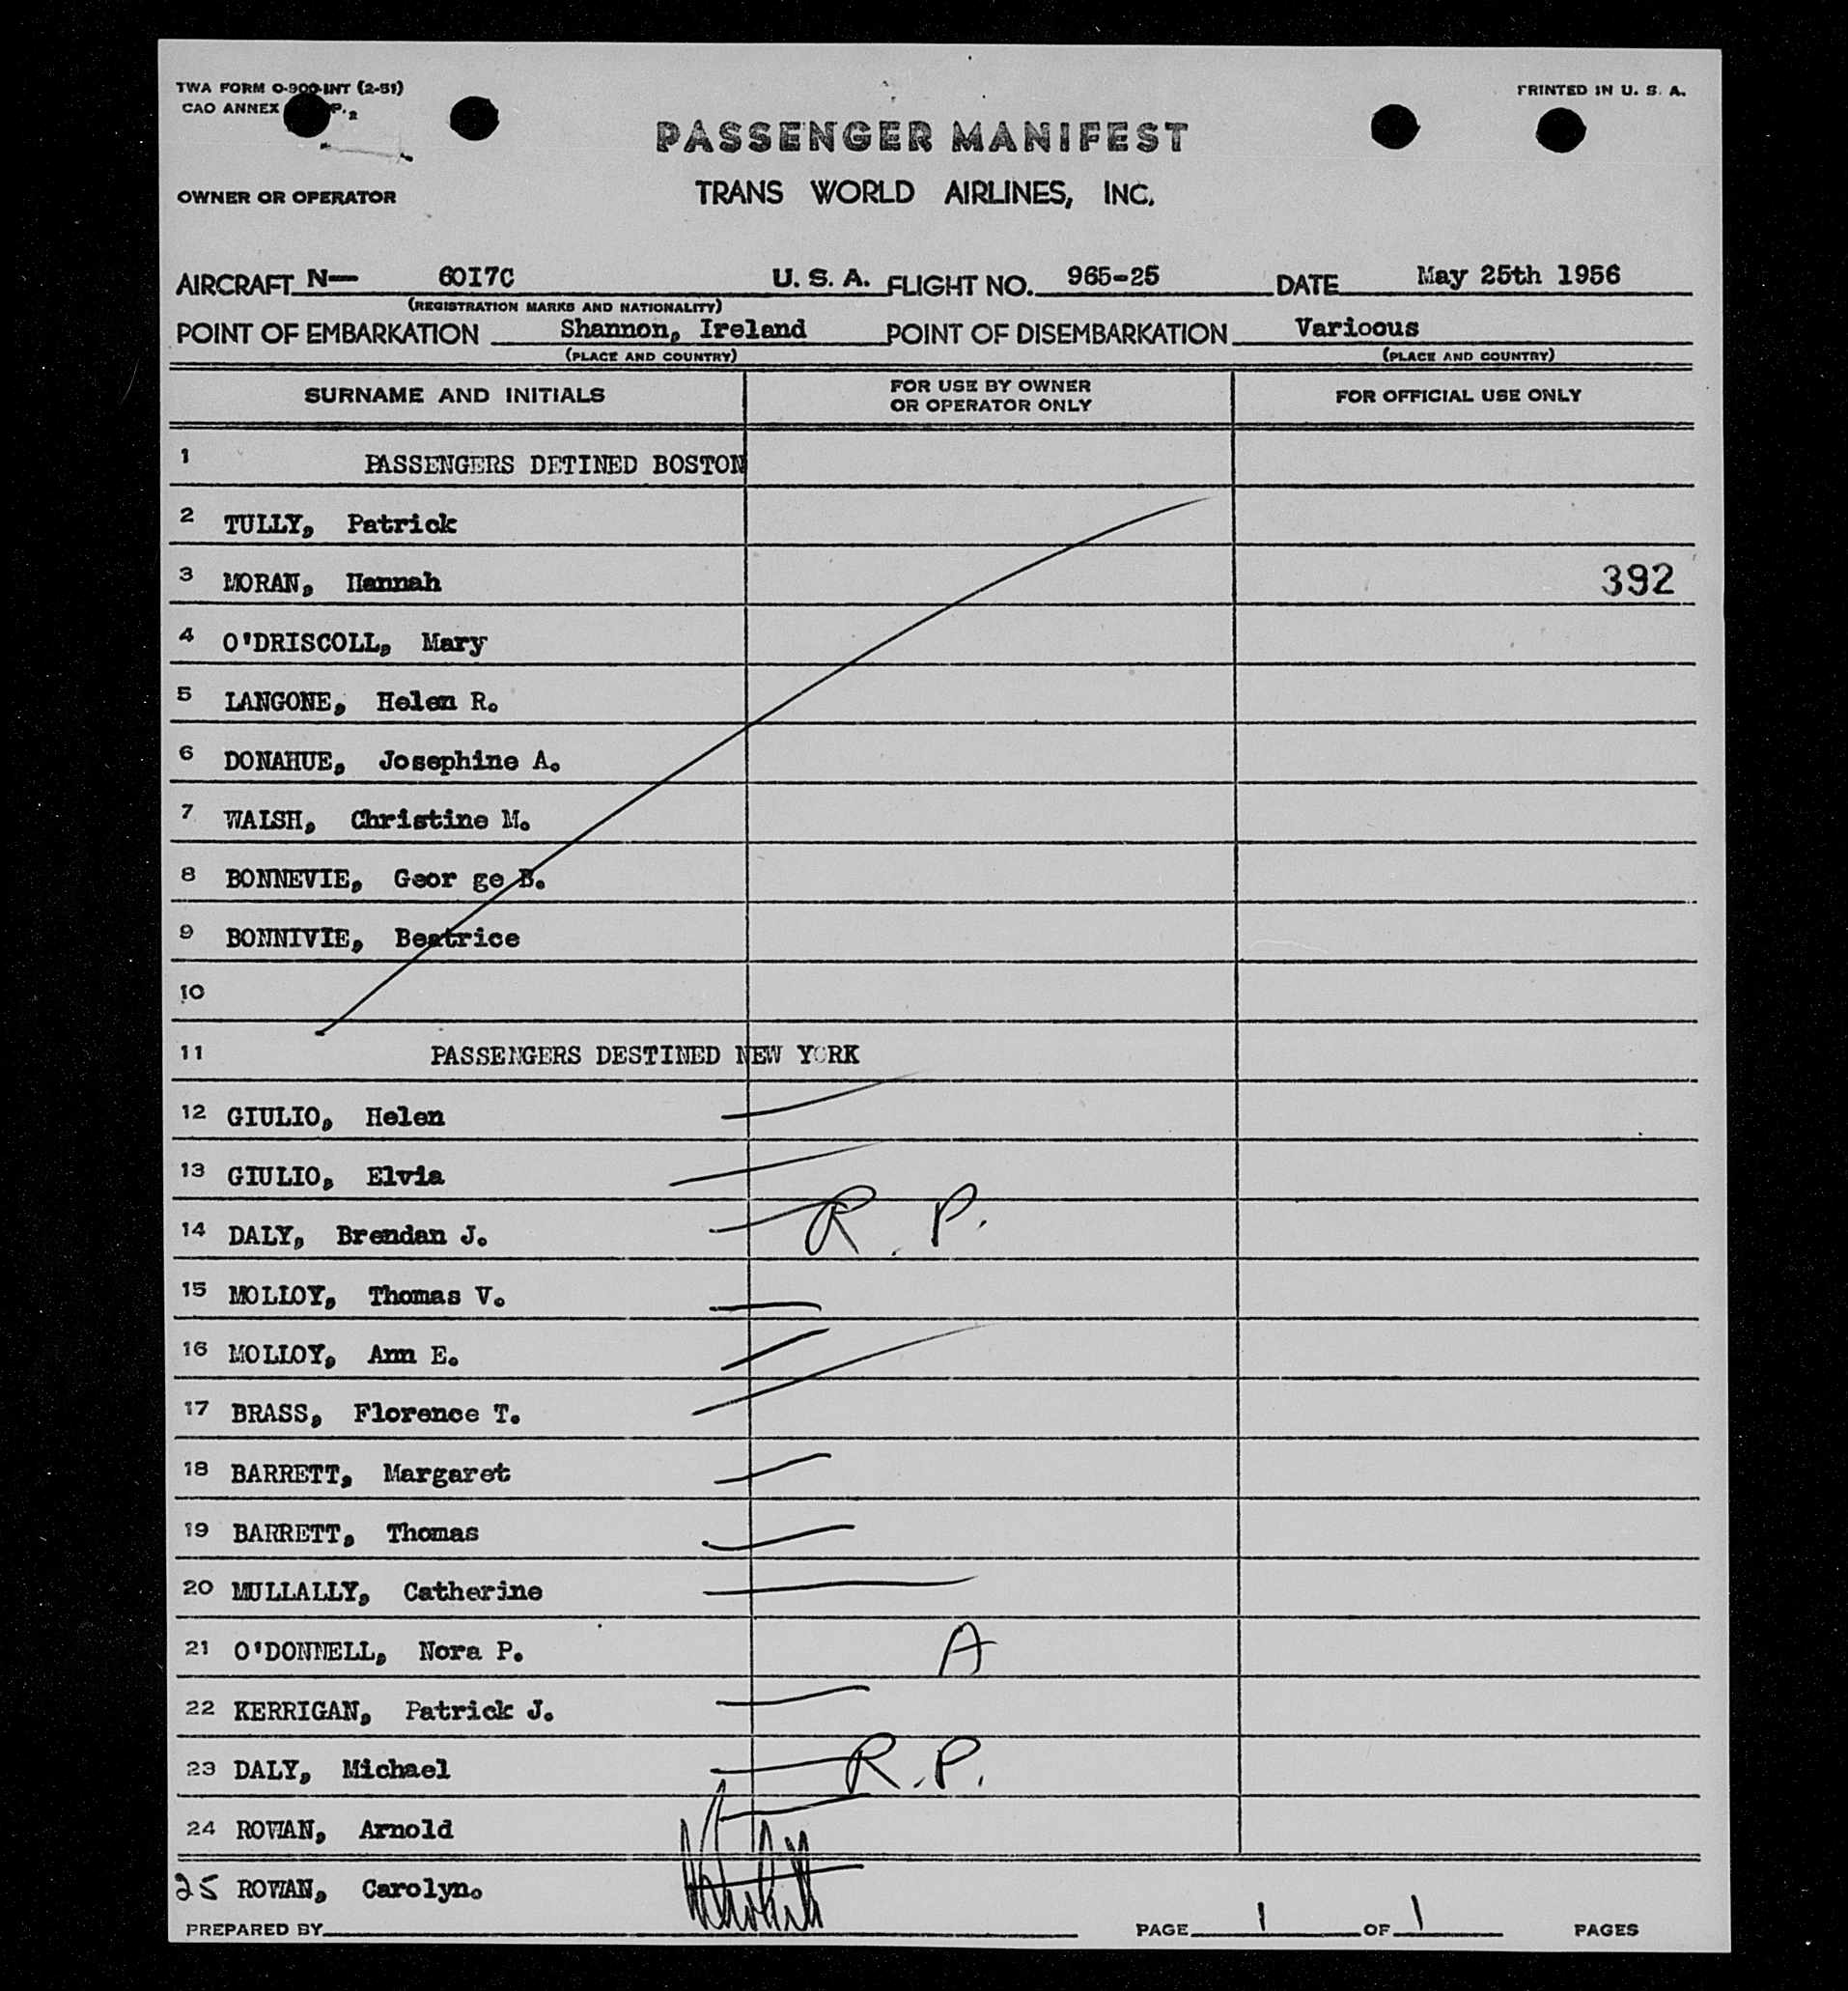 TWA FORM O-900-INT (2-51)
PRINTED IN U. S. A.
CAO ANNEX P. 2
PASSENGER MANIFEST
OWNER OR OPERATOR
TRANS WORLD AIRLINES, INC.
AIRCRAFT N— 60I7C U. S. A. FLIGHT NO. 965-25 DATE May 25th 1956
(REGISTRATION MARKS AND NATIONALITY)
POINT OF EMBARKATION Shannon, Ireland POINT OF DISEMBARKATION Varioous
(PLACE AND COUNTRY) (PLACE AND COUNTRY)
SURNAME AND INITIALS FOR USE BY OWNER OR OPERATOR ONLY FOR OFFICIAL USE ONLY
1 PASSENGERS DETINED BOSTON
2 TULLY, Patrick
3 MORAN, Hannah 392
4 O'DRISCOLL, Mary
5 LANGONE, Helen R.
6 DONAHUE, Josephine A.
7 WALSH, Christine M.
8 BONNEVIE, Geor ge B.
9 BONNIVIE, Beatrice
10
11 PASSENGERS DESTINED NEW YORK
12 GIULIO, Helen
13 GIULIO, Elvia
14 DALY, Brendan J. R. P.
15 MOLLOY, Thomas V.
16 MOLLOY, Ann E.
17 BRASS, Florence T.
18 BARRETT, Margaret
19 BARRETT, Thomas
20 MULLALLY, Catherine
21 O'DONNELL, Nora P. A
22 KERRIGAN, Patrick J.
23 DALY, Michael R.P.
24 ROWAN, Arnold
25 ROWAN, Carolyn.
PREPARED BY PAGE 1 OF 1 PAGES